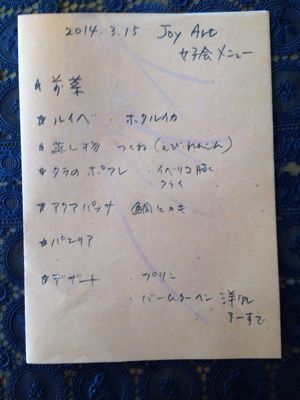 2014.3.15 Joy Art
女子会メニュー
☆前菜
☆ルイベ ・ホタルイカ
☆蒸し物 つくね(えびれんこん)
☆タラのポワレ ・イベリコ豚と
フライ
☆アクアパッツァ 鯛とカキ
☆パエリア
☆デザート ・プリン
・バームクーヘン 洋なし
そーすで